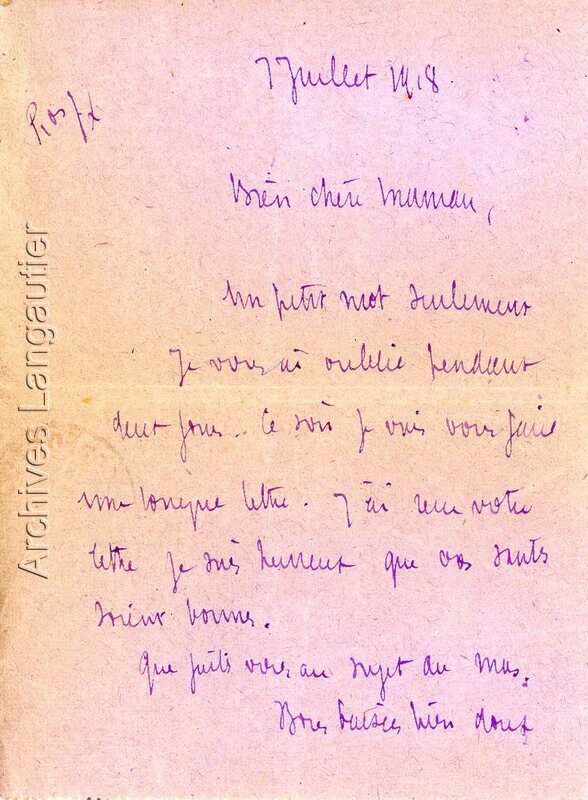 7 Juillet 1918
Bien chère Maman,
Un petit mot seulement
Je vous ai oublié pendant
deux jours.. Ce soir je vais vous faire
une longue lettre. J'ai reçu votre
lettre je suis heureux que vos santés
soient bonnes.
Que faites vous au sujet du mas.
Bons baisers bien doux
Archives Langautier